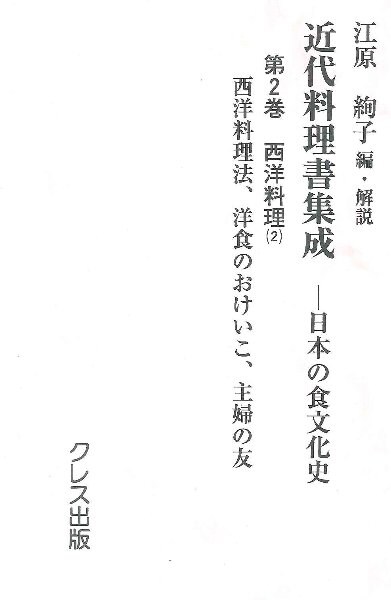 江原 絢子 編・解説
近代料理書集成 ―日本の食文化史
第2巻 西洋料理(2)
西洋料理法、洋食のおけいこ、主婦の友
クレス出版